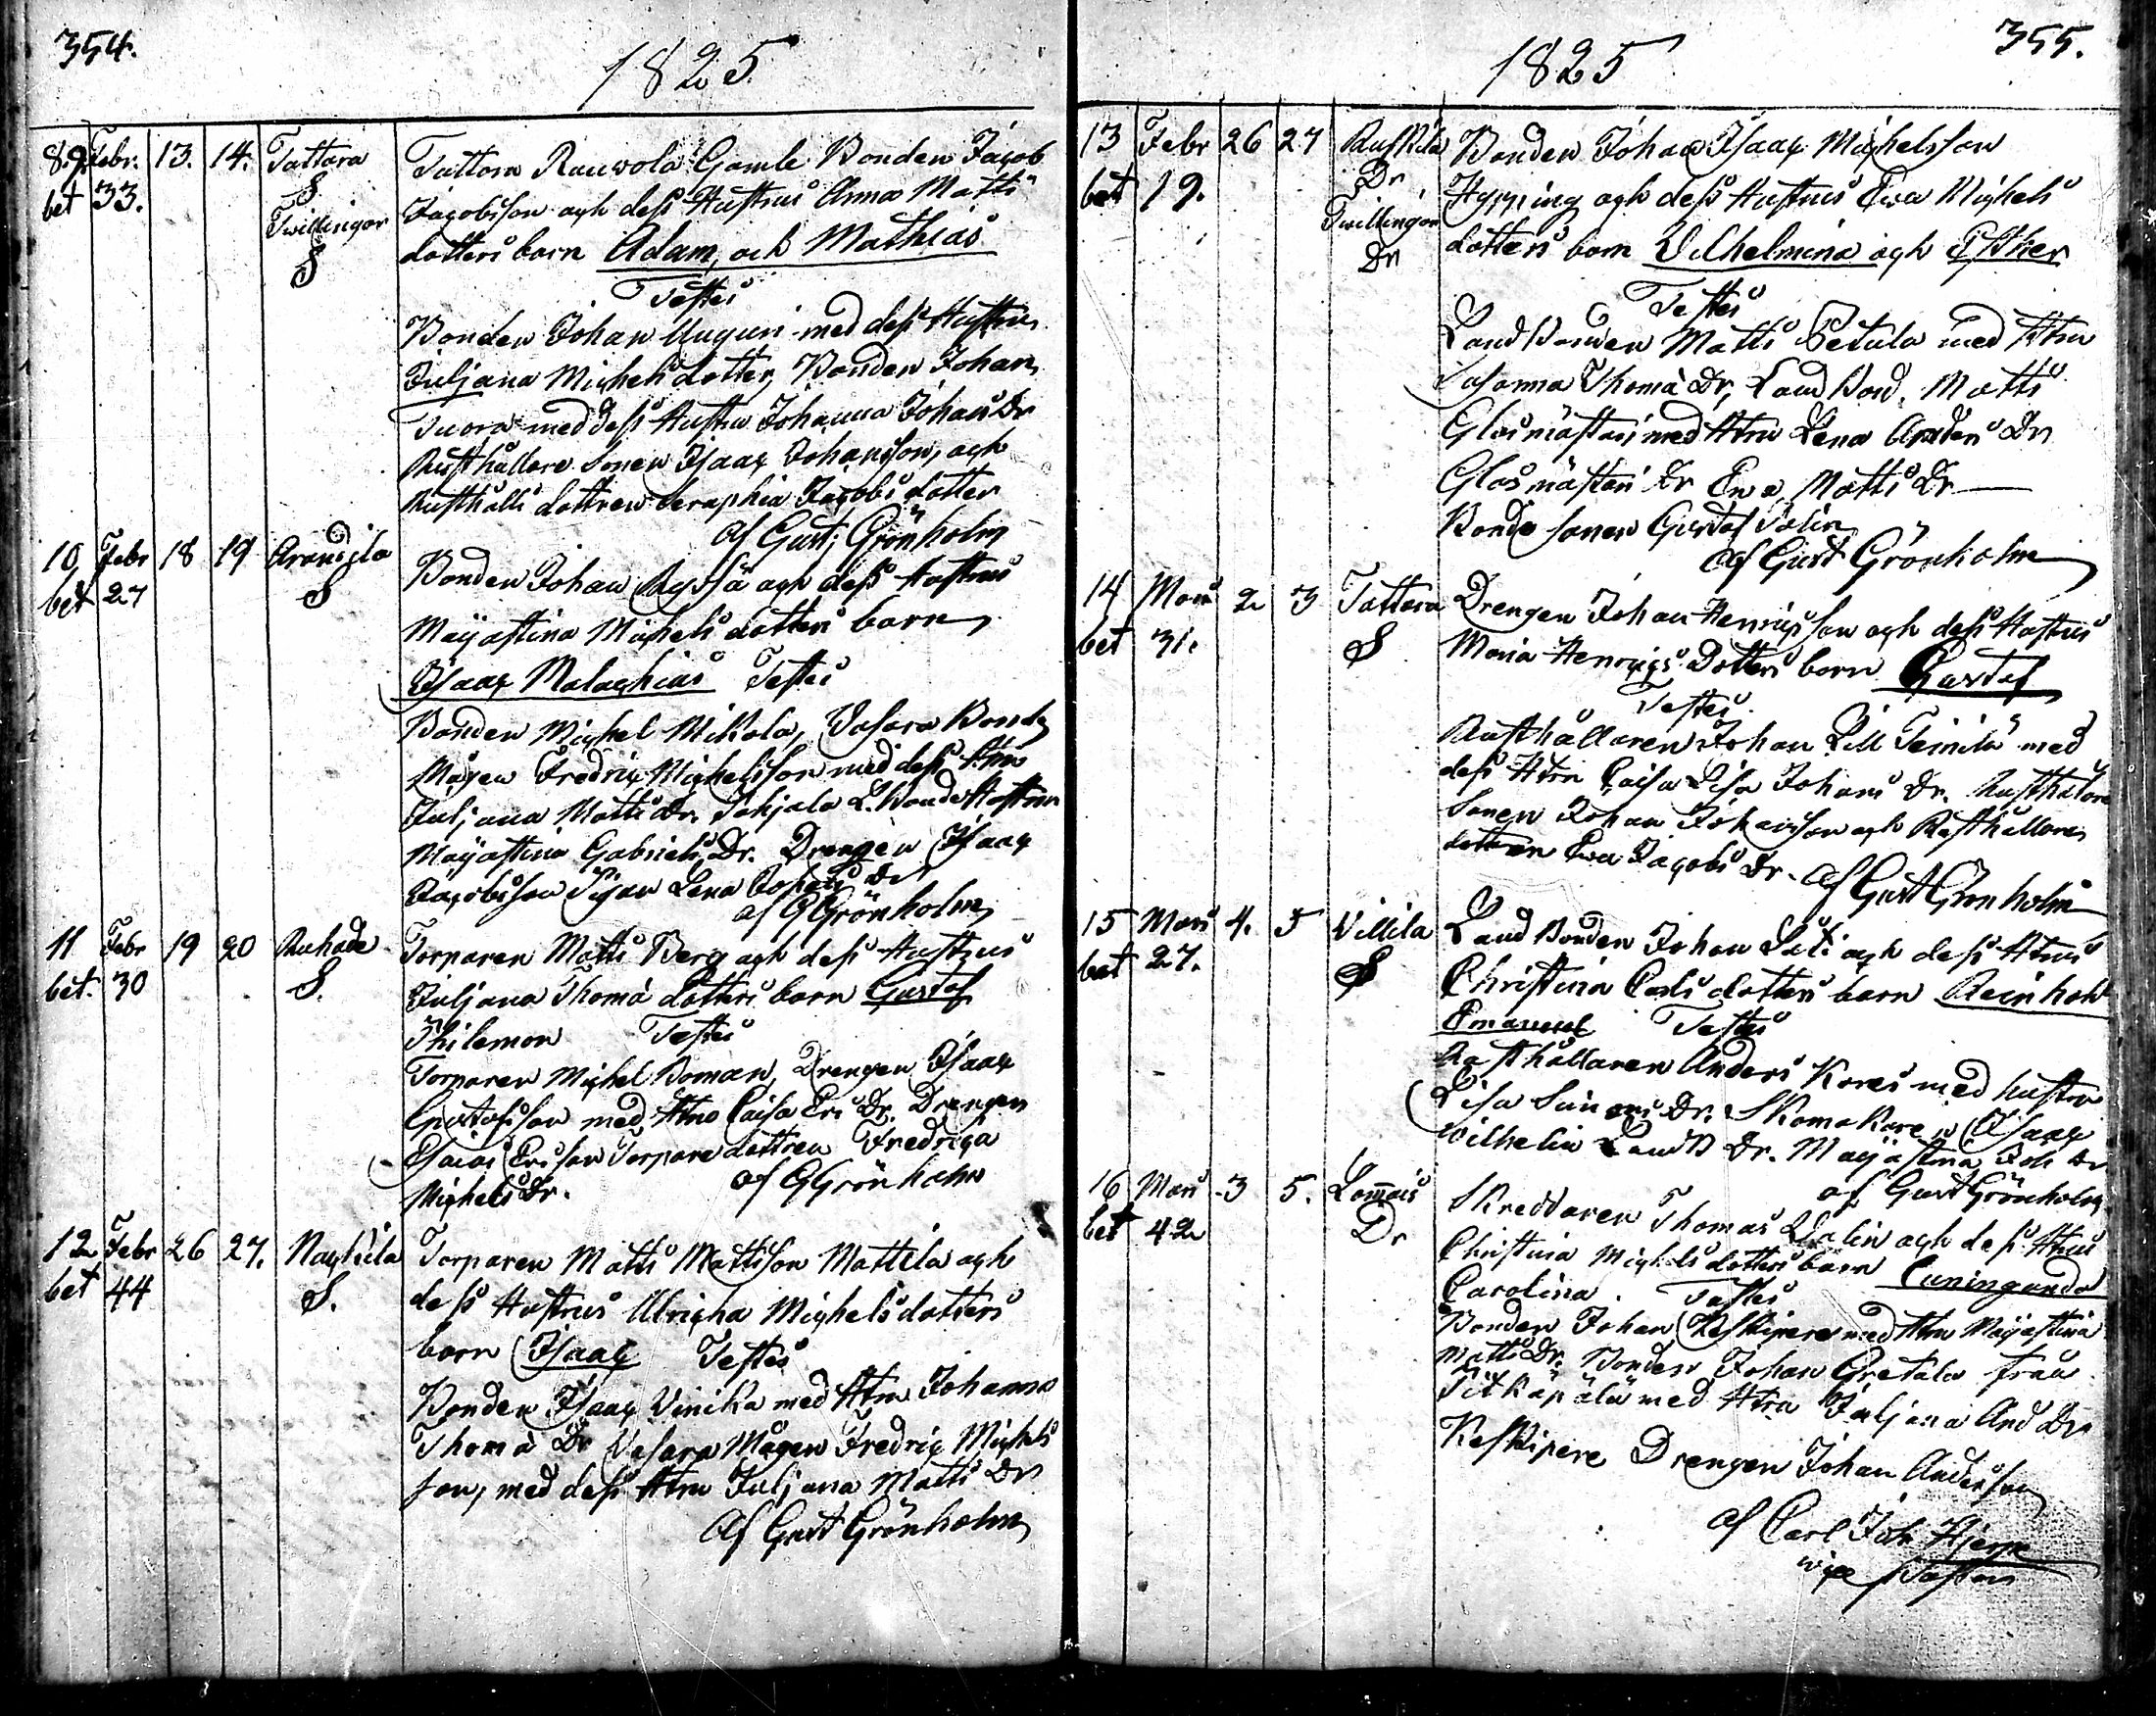 354.
1825
8.9. Febr. 13. 14. Tattara Tattara Rauvola Gamle Bonden Jacob
bet 33. S. Jacobsson och dess Hustrus Anna Matts
Twillingar dotters barn Adam, och Mathias
S
Testes
Bonden Johan Uuguri med dess Hustru
Juljana Michels dotter, Bonden Johan
Tuora med dess Hustru Johanna Johans Dr
Rusthållare Sonen Isaac Johansson, och
Rusthålls dottren Seraphia Jacobs dotter
af Gust: Grönholm
10 Febr 18 19 Bonden Johan Ryssä och dess Hustrus
bet 27 S Majastina Michels dotters barn
Isaac Malachias Testes
Bonden Michel Mikola, Vasara Bonde
Mågen Fredric Michelsson med dess Htru
Juljana Matts Dr. Pohjala L. Bonde Hustrun
Majastina Gabriels Dr. Drengen Isaac
Jacobsson Pigan Lena Dr
af G Grönholm
11 Febr 19 20 Rahade Torparen Matts Berg och dess Hustrus
bet. 30 S. Juljana Thomæ dotters barn Gustaf
Philemon Testes
Torparen Michel Boman, Drengen Isaac
Gustafsson med Htru Caisa Ers Dr. Drengen
Esaias Ersson Torpare dottren Fredrica
Michels Dr. af G Grönholm
12 Febr 26 27. Nachkila Torparen Matts Mattsson Mattila och
bet 44 S. dess Hustrus Ulricha Michels dotters
barn Isaac Testes
Bonden Isaac Vinika med Htru Johanna
Thomæ Dr Vasara Mågen Fredric Michels
son, med dess Htru Juljana Matts Dr
Af Gust Grönholm
355.
1825
13 Febr 26 27 Ruskila Bonden Johan Isaac Michelsson
bet 19. Dr Hypping och dess Hustrus Ewa Michels
Twillingar dotters barn Vilhelmina och Esther
Dr
Testes
Land Bonden Matts Petula med Htru
Susanna Thomæ Dr, Land Bond. Matts
Glasmästari med Htru Lena Anders Dr
Glasmästari Dr Ewa Matts Dr
Bonde sonen Gustaf Salin
af Gust Grönholm
14 Mars 2 3 Tattara Drengen Johan Henricsson och dess Hustrus
bet 31. S Maria Henrics Dotters barn Gustaf
Testes
Rusthållaren Johan Lill Teinilä med
dess Htru Caisa Lisa Johans Dr. Rusthållare
Sonen Johan Johansson och Rusthållare
dottren Ewa Jacobs Dr. af Gust Grönholm
15 Mars 4. 5 Villila Land Bonden Johan och dess Htrus
bet 27. S Christina Carls dotters barn Reinhold
Emanuel Testes
Rusthållaren Anders Kares med hustru
Lisa Simons Dr. Skomakare Isaac
Wilhelm Dr. Majastina Joh Dr
af Gust Grönholm
16 Mars 3 5. Lomais Skreddaren Thomas Dalin och dess Htrus
bet 42 Dr Christina Michels dotters barn Cuningunda
Carolina. Testes
Bonden Johan Keskipere med Htru Majastina
Matts Dr. Bonden Johan Gretala från
Pitkäpälä med Htru Juljana And Dr
Keskipere Drengen Johan Andersson
af Carl Joh Hjerpe
vice Pastor